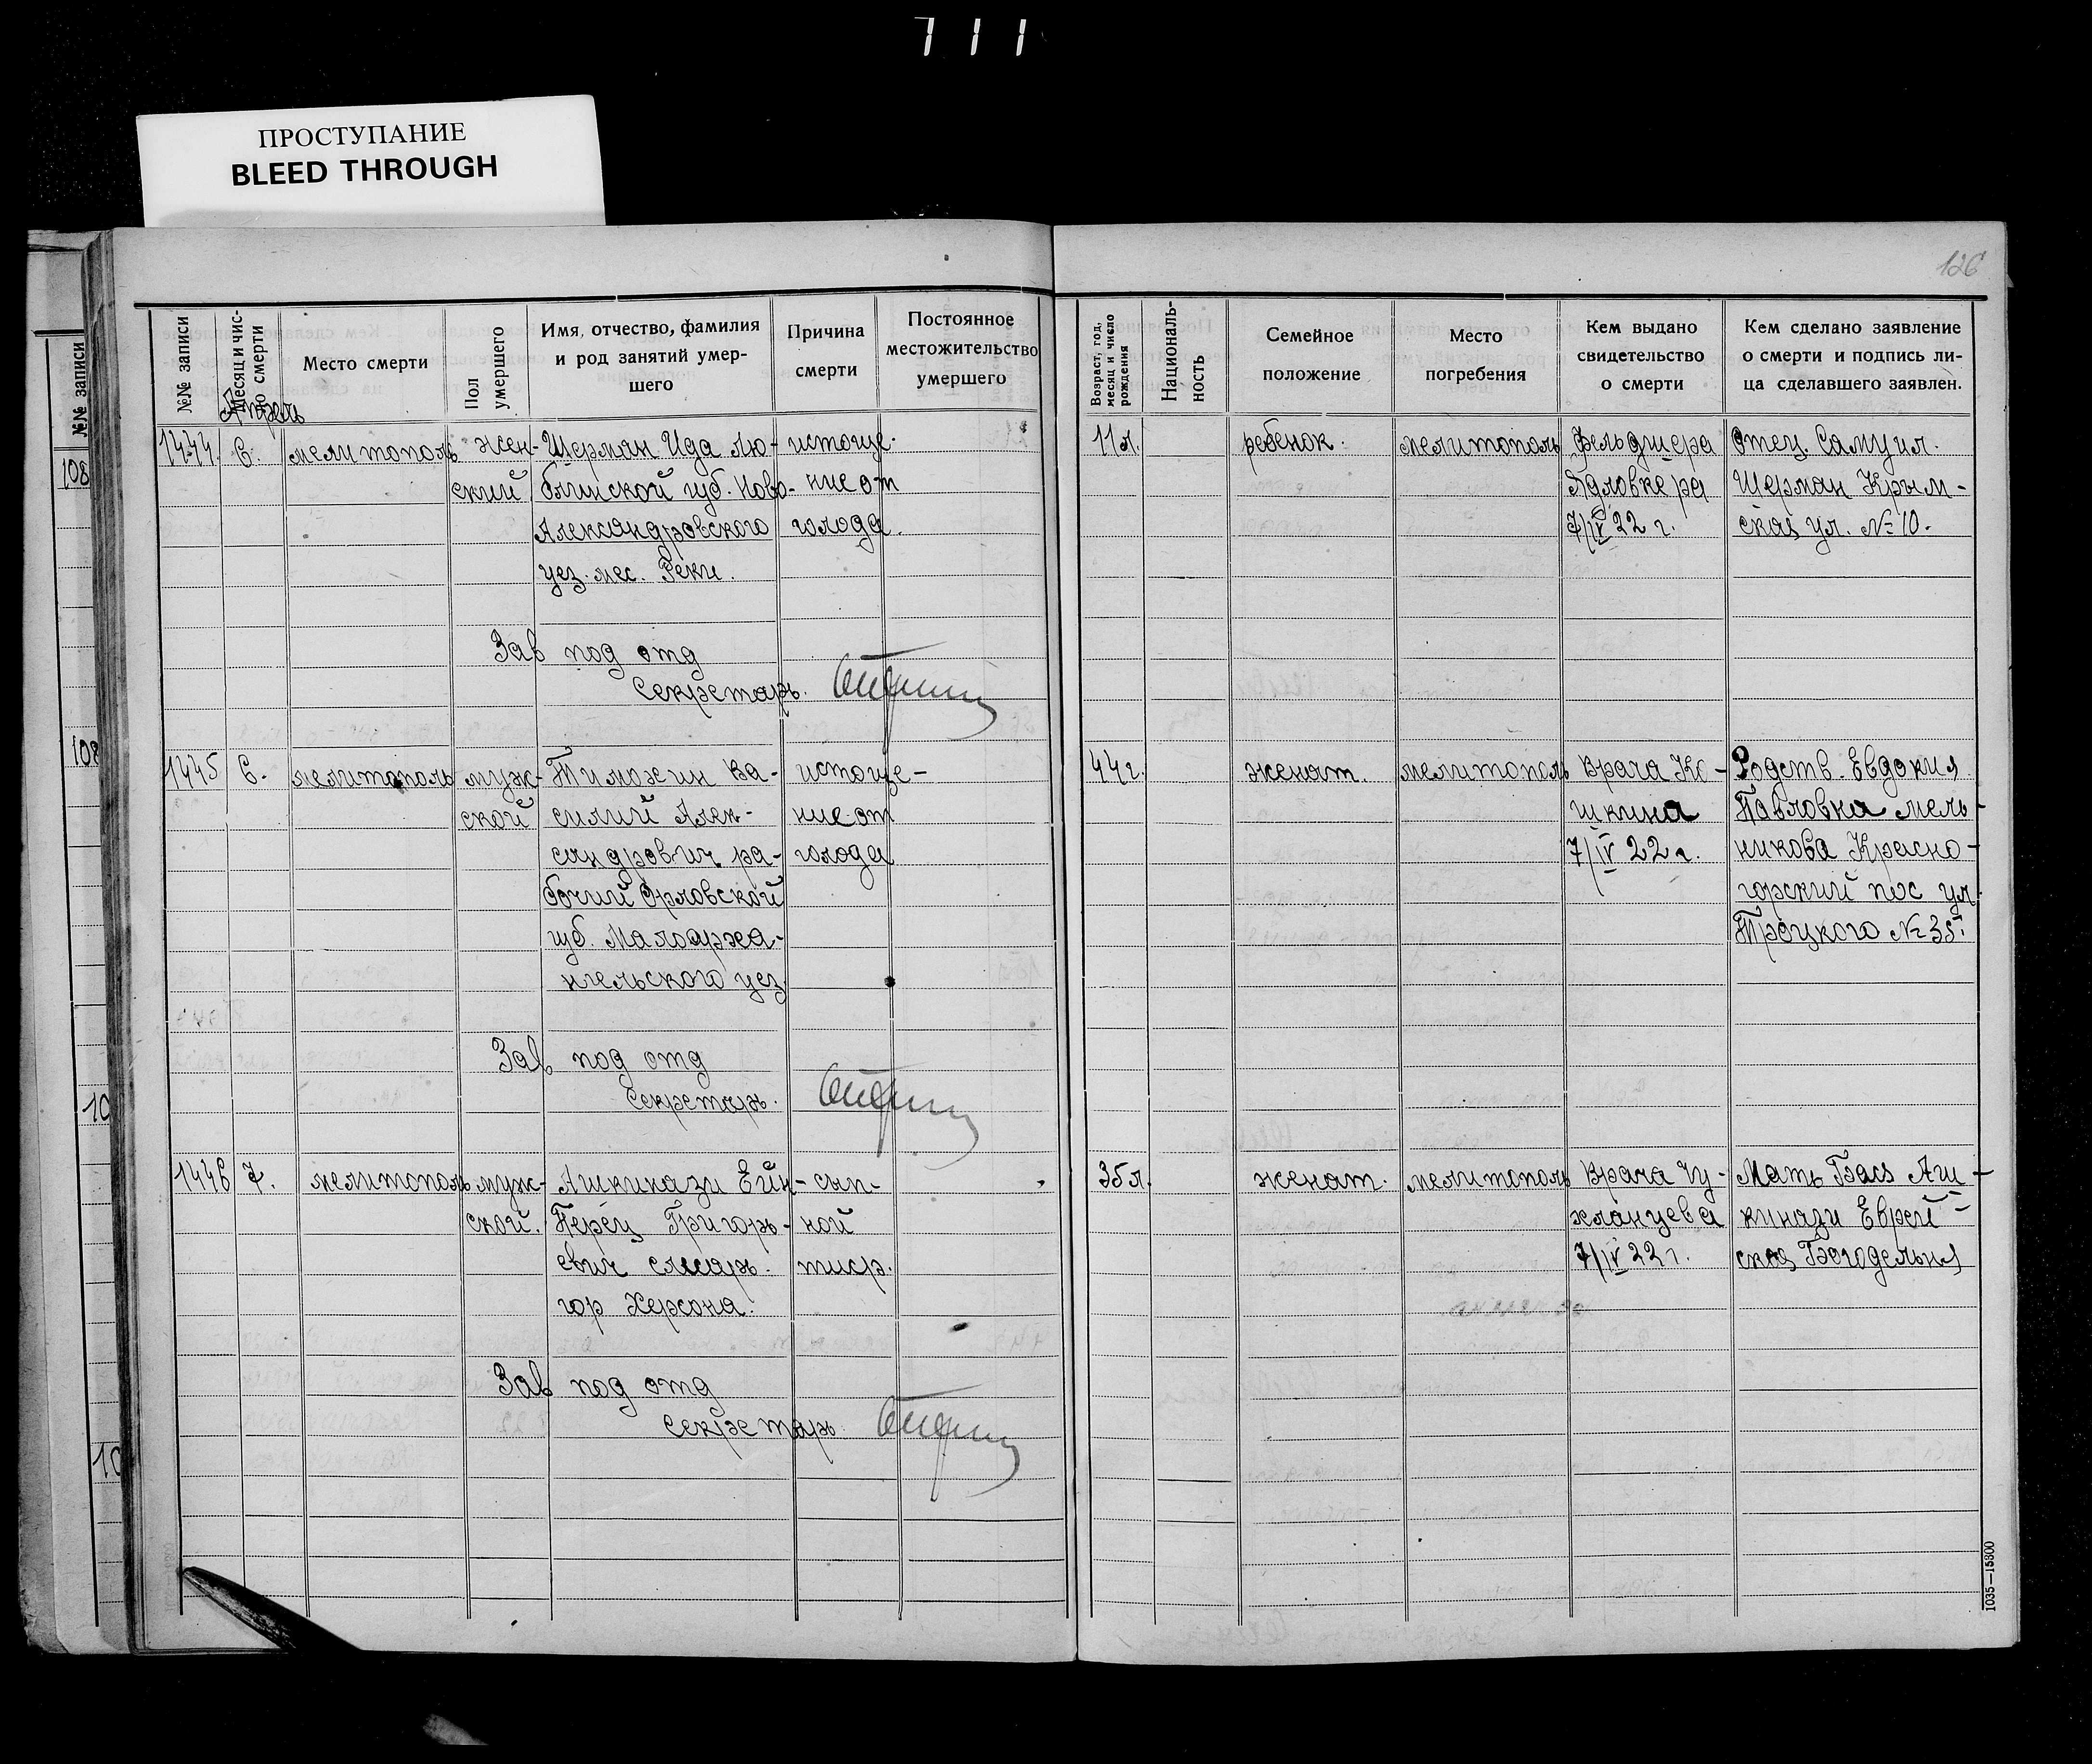 711
ПРОСТУПАНИЕ
BLEED THROUGH
126
№№ записи
108
108
10
10
№№ записи
Месяц и чис-
ло смерти
Апрель
Место смерти
Пол
умершего
Имя, отчество, фамилия
и род занятий умер-
шего
Причина
смерти
Постоянное
местожительство
умершего
Возраст, год,
месяц и число
рождения
Националь-
ность
Семейное
положение
Место
погребения
Кем выдано
свидетельство
о смерти
Кем сделано заявление
о смерти и подпись ли-
ца сделавшего заявлен.
1444. 6. мелитополь жен- Шерман Ида Лю- истоще- 11 л. ребенок. мелитополь фельдшера отец Самуил.
ский блинской губ. Ново- ние от Шерман Крым-
Александровского голода. 7/IV 22 г. ская ул. № 10.
уез. мес. Реки.
Зав под отд
Секретарь.
1445 6. мелитополь муж- Тимохин Ва- истоще- 44 г. женат. мелитополь Врача Ко- Родств. Евдокия
ской силий Алек- ние от шкина Павловна Мель-
сандрович ра- голода 7/IV 22 г. никова Красно-
бочий Орловской горский пос ул
губ. Малоарха- Троцкого № 35.
нгельского уез.
Зав под отд
Секретарь.
1446 7. мелитополь муж- Ашкинази Ейн- сып- 35 л. женат. мелитополь Врача Чу- Мать Бася Аш-
ской. Перец Григорь- ной хланцева кинази Еврей-
евич слесарь. тиф. 7/IV 22 г. ская Богодельня
гор Херсона.
Зав под отд
Секретарь
1035—15300